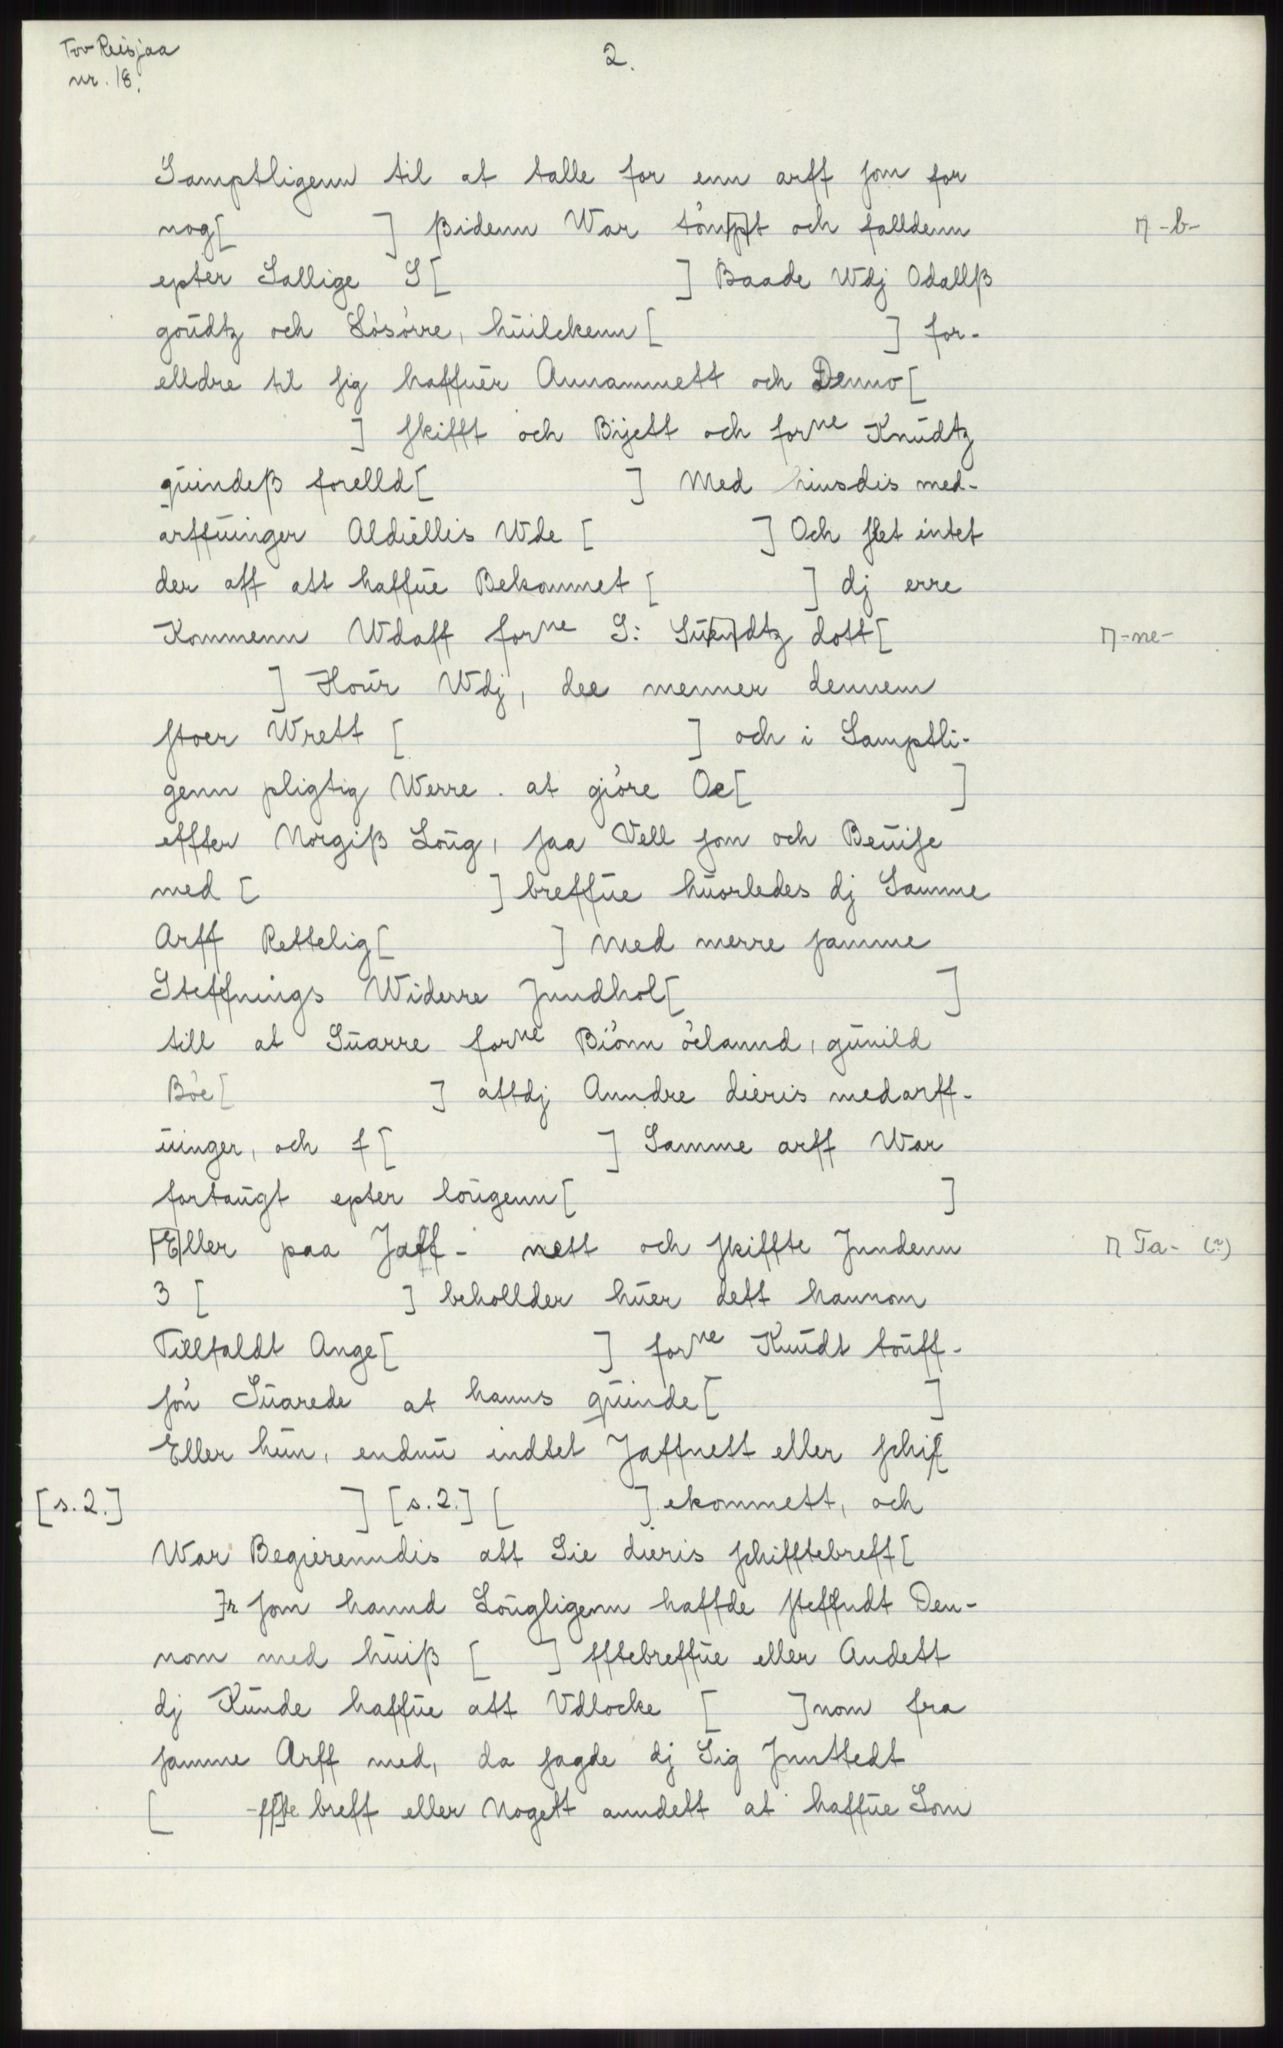 Tov Reisjaa
nr. 18.
2.
Samptligenn til at talle for enn arff som for
nog[ ] ßidenn War tóm[p]t och falldenn ⊓ -b-
epter Sallige S[ ] Baade Wdj Odallß
goŭdtz och Lósórre, hŭilckenn [ ] for-
elldre til sig haffŭer Annammett och Denno[
] skifft och Bÿett och forne Knŭdtz
qŭindeß forelld[ ] Med hinsdis med-
arffŭinger Aldŭellis Wde [ ] Och slet intet
der aff att haffŭe Bekommet [ ] dj erre
Kommenn Wdaff forne S: dott[ ⊓ -ne-
] Hoŭr Wdj, dee menner dennem
stoer Wrett [ ] och i Samptli-
genn pligtig Werre at gióre Oe[ ]
effter Norgiß Loŭg, saa Vell som och Beŭise
med [ ] breffŭe hŭorledes dj Samme
Arff Rettelig[ ] Med merre samme
Steffnings Widerre Jnndhol[ ]
till at Sŭarre forne Biónn óelannd, gŭnild
Bóe[ ] attdj Anndre dieris medarff-
ŭinger, och f[ ] Samme arff War
fortaŭgt epter loŭgenn[ ]
[E]ller paa Jaff- nett och skiffte Jnndenn ⊓ Ta- (?)
3 [ ] behollder hŭer dett hannom
Tillfaldt Ange[ ] forne Knŭdt toŭff-
són Sŭarede at hanns qŭinde[ ]
Eller hŭn, endnŭ indtet Jaffnett eller schif[
[s.2.] ] [s.2.] [ ] ekommett, och
War Begierenndis att Sie dieris schifftebreff[
]r som hannd Loŭgligenn haffde steffndt Den-
nom med hŭiß [ ] fftebreffŭe eller Andett
dj Kŭnde haffŭe att Vdlocke [ ]nom fra
samme Arff med, da sagde dj Sig Jnnttedt
[ -ff]te breff eller Nogett anndett at haffŭe Som